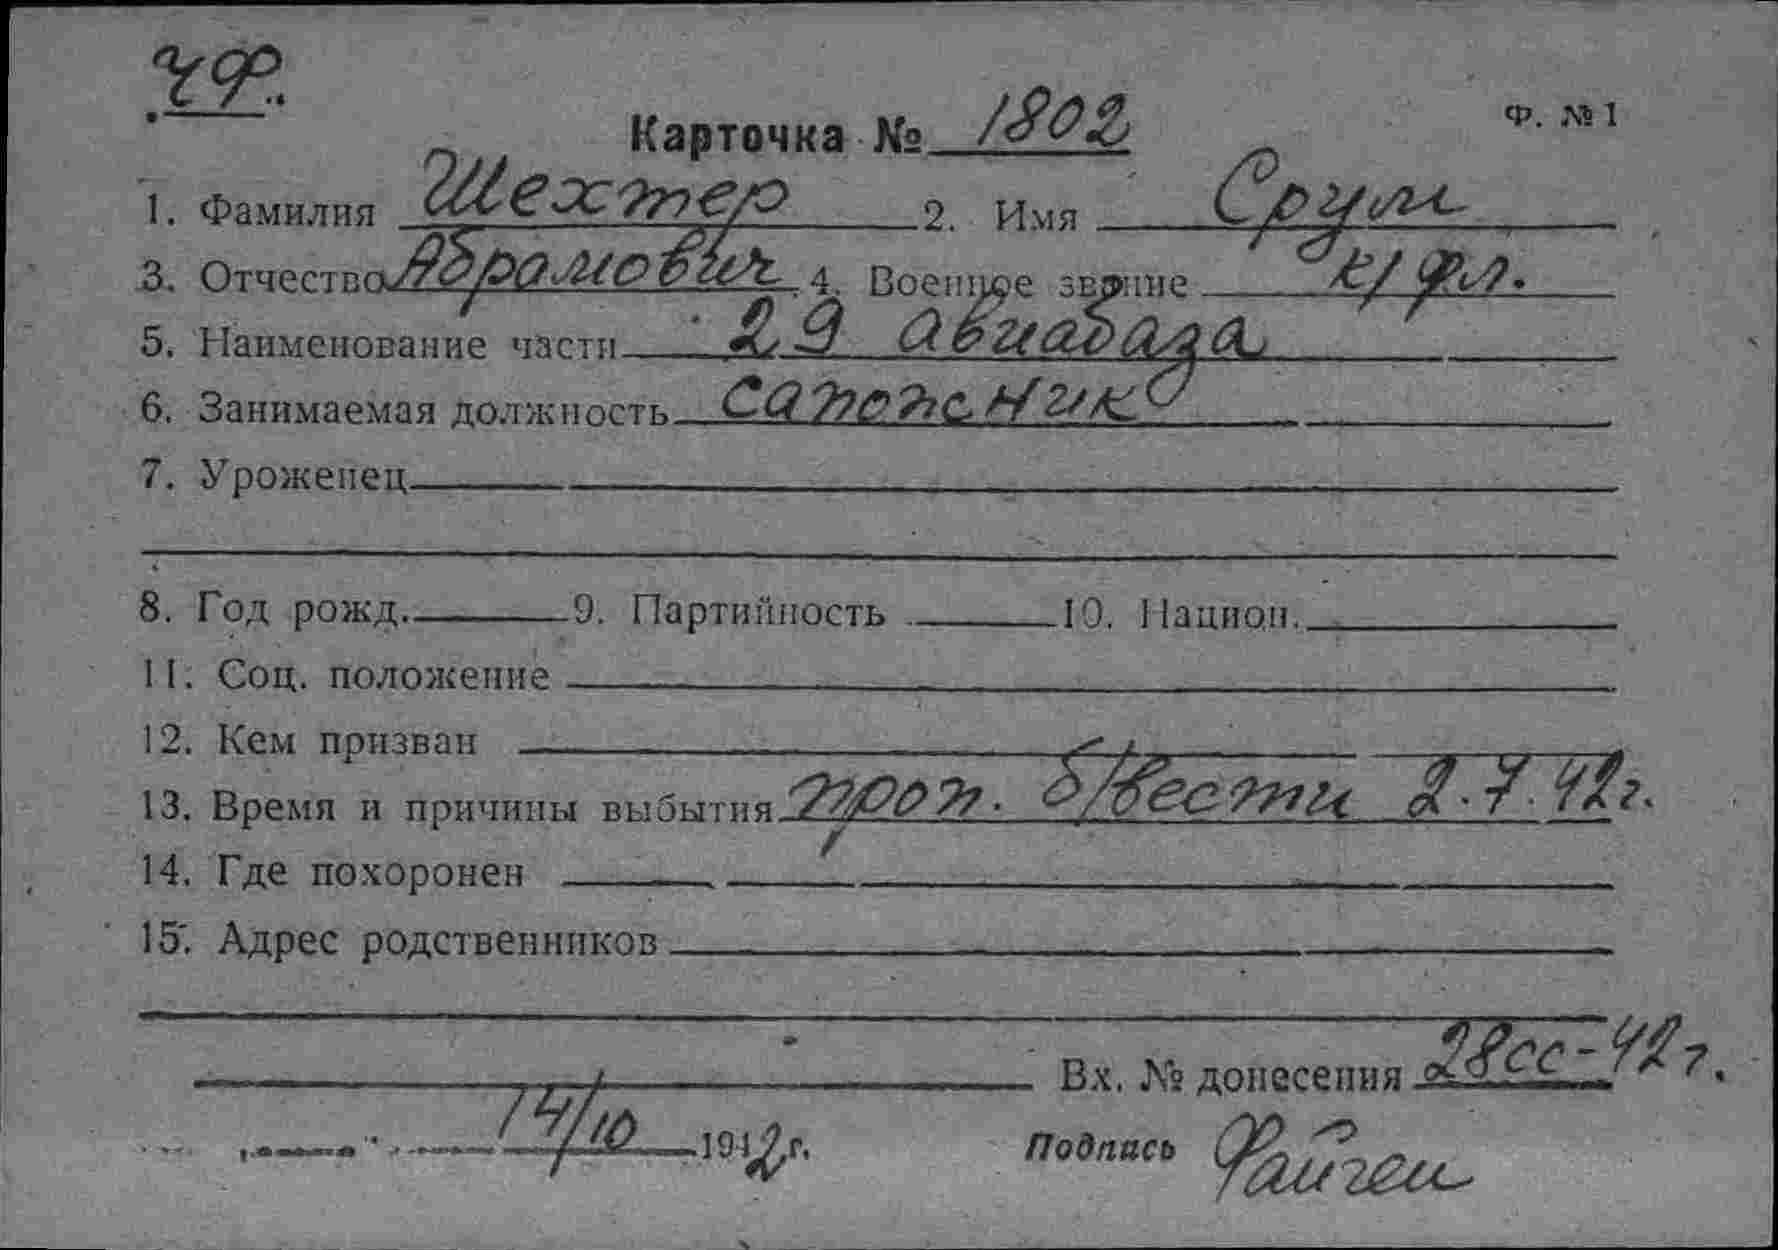 ЧФ.
Карточка № 1802
Ф. № 1
1. Фамилия Шехтер 2. Имя Срул
3. Отчество Абрамович 4. Военное звание к/фл.
5. Наименование части 29 авиабаза
6. Занимаемая должность сапожник
7. Уроженец
8. Год рожд. 9. Партийность 10. Национ.
11. Соц. положение
12. Кем призван
13. Время и причины выбытия проп. б/вести 2.7.42г.
14. Где похоронен
15. Адрес родственников
Вх. № донесения 28сс-42г.
14/10 1942г. Подпись